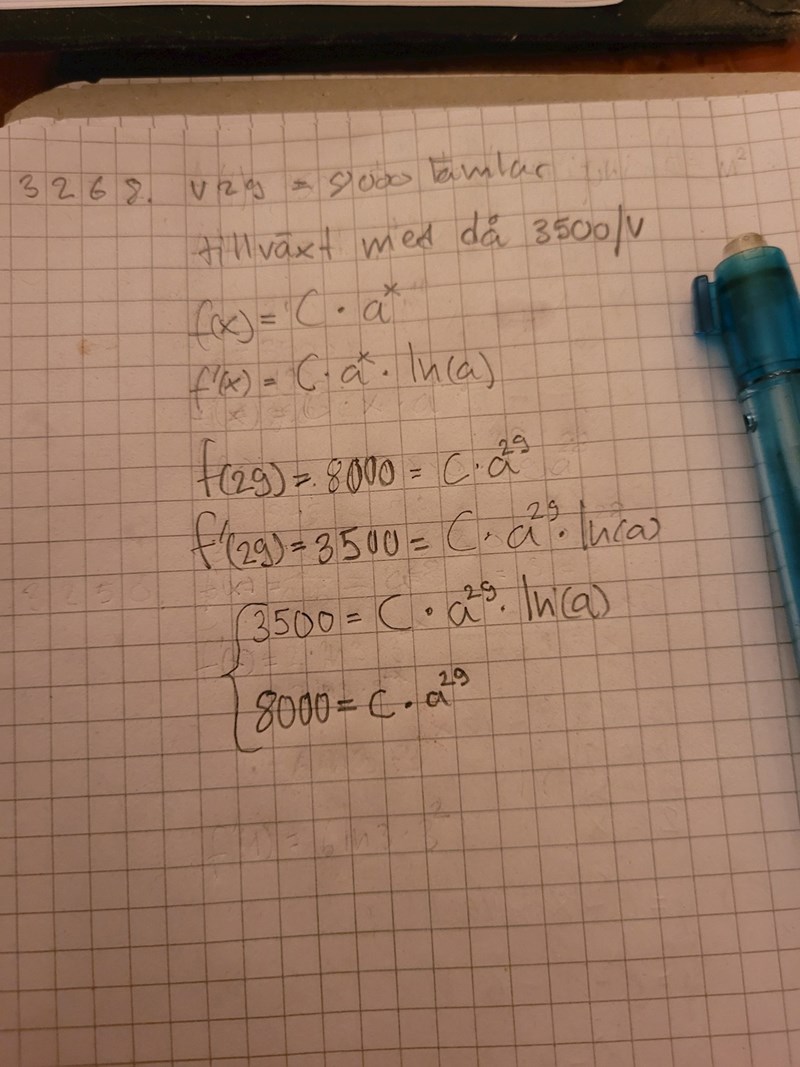 3268. V29 = 8000 lämlar
tillväxt med då 3500/V
f(x) = C · a^x
f'(x) = C · a^x · ln(a)
f(29) = 8000 = C · a^29
f'(29) = 3500 = C · a^29 · ln(a)
3500 = C · a^29 · ln(a)
8000 = C · a^29